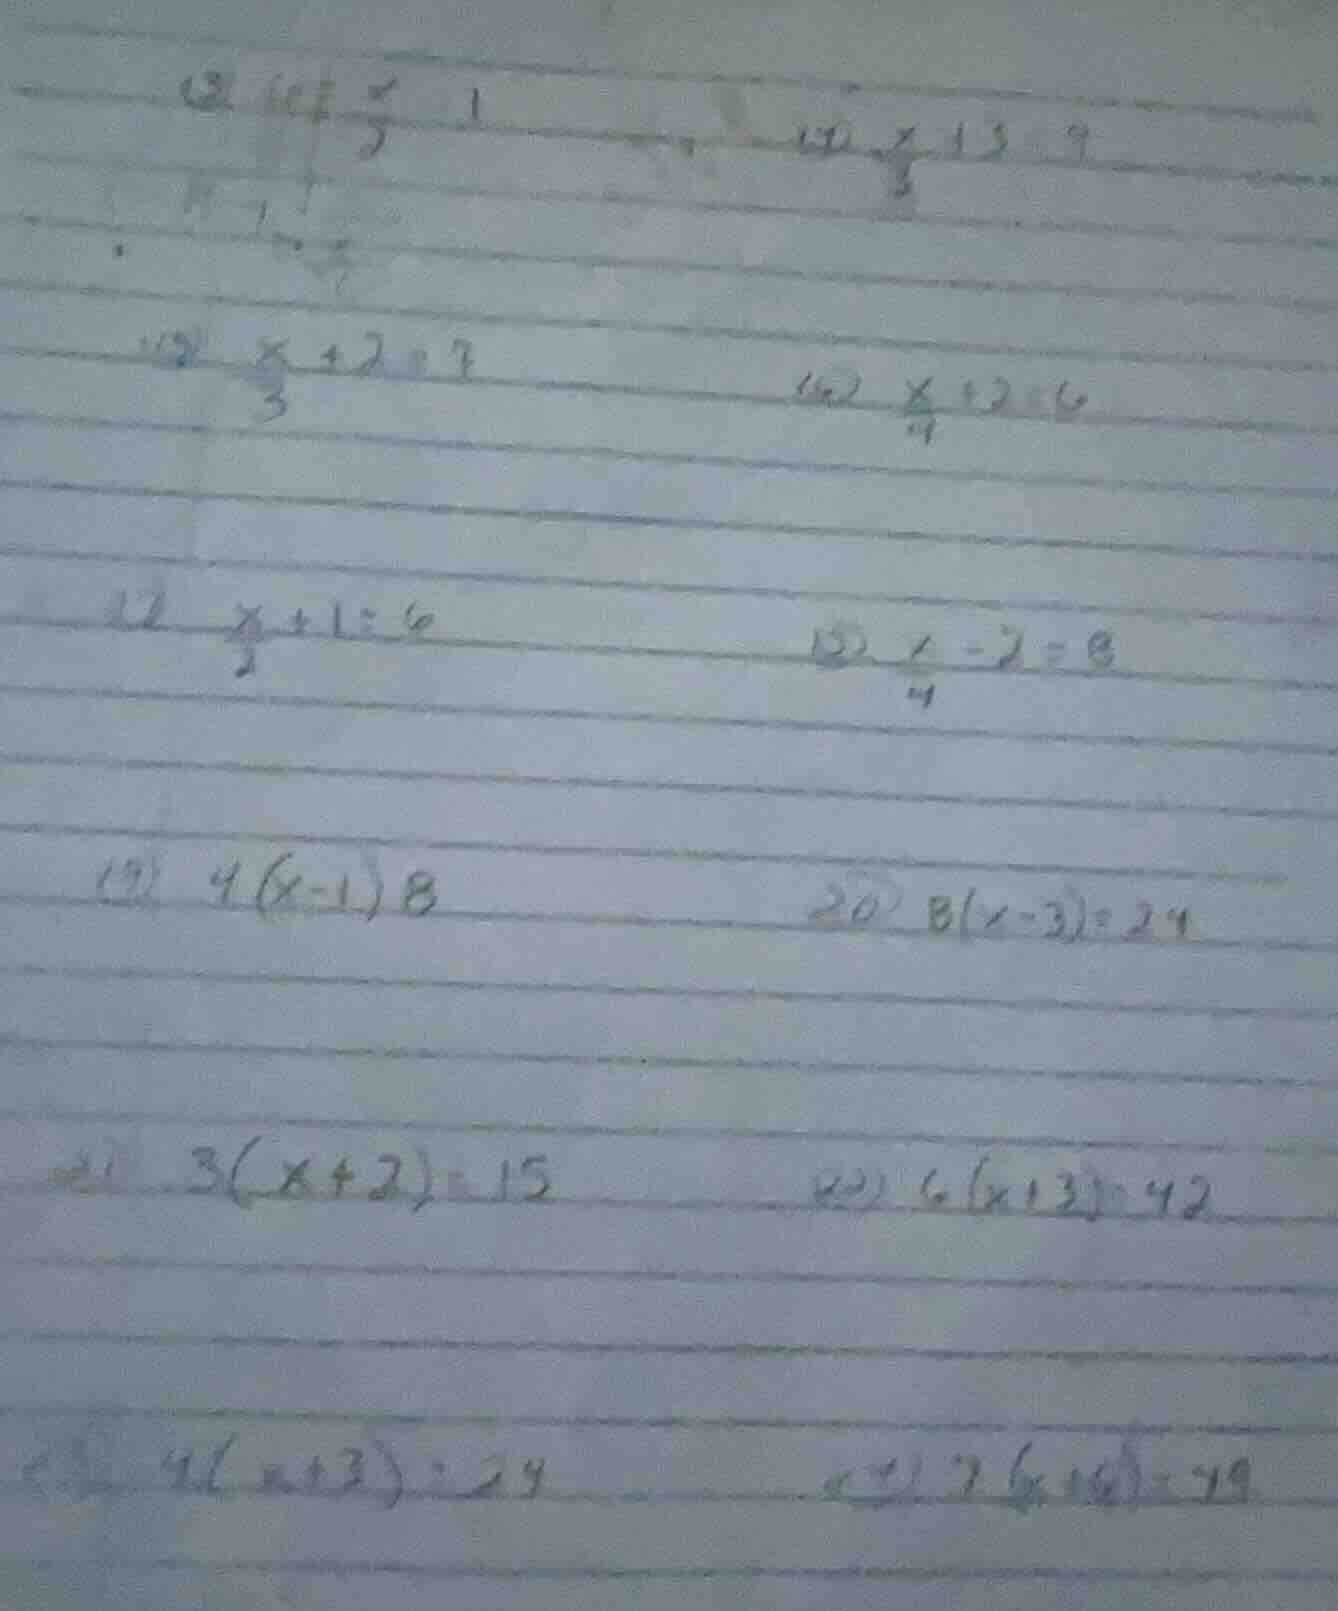 x/3 + 3 9
x/3 + 2 = 7
16) x/4 + 2 = 6
17 x/2 + 1 = 6
x/4 - 2 = 8
19) 4(x-1) 8
20) 8(x-3) = 24
21) 3(x+2) = 15
22) 6(x+3) = 42
4(x+3) = 24
7(x+6) = 49